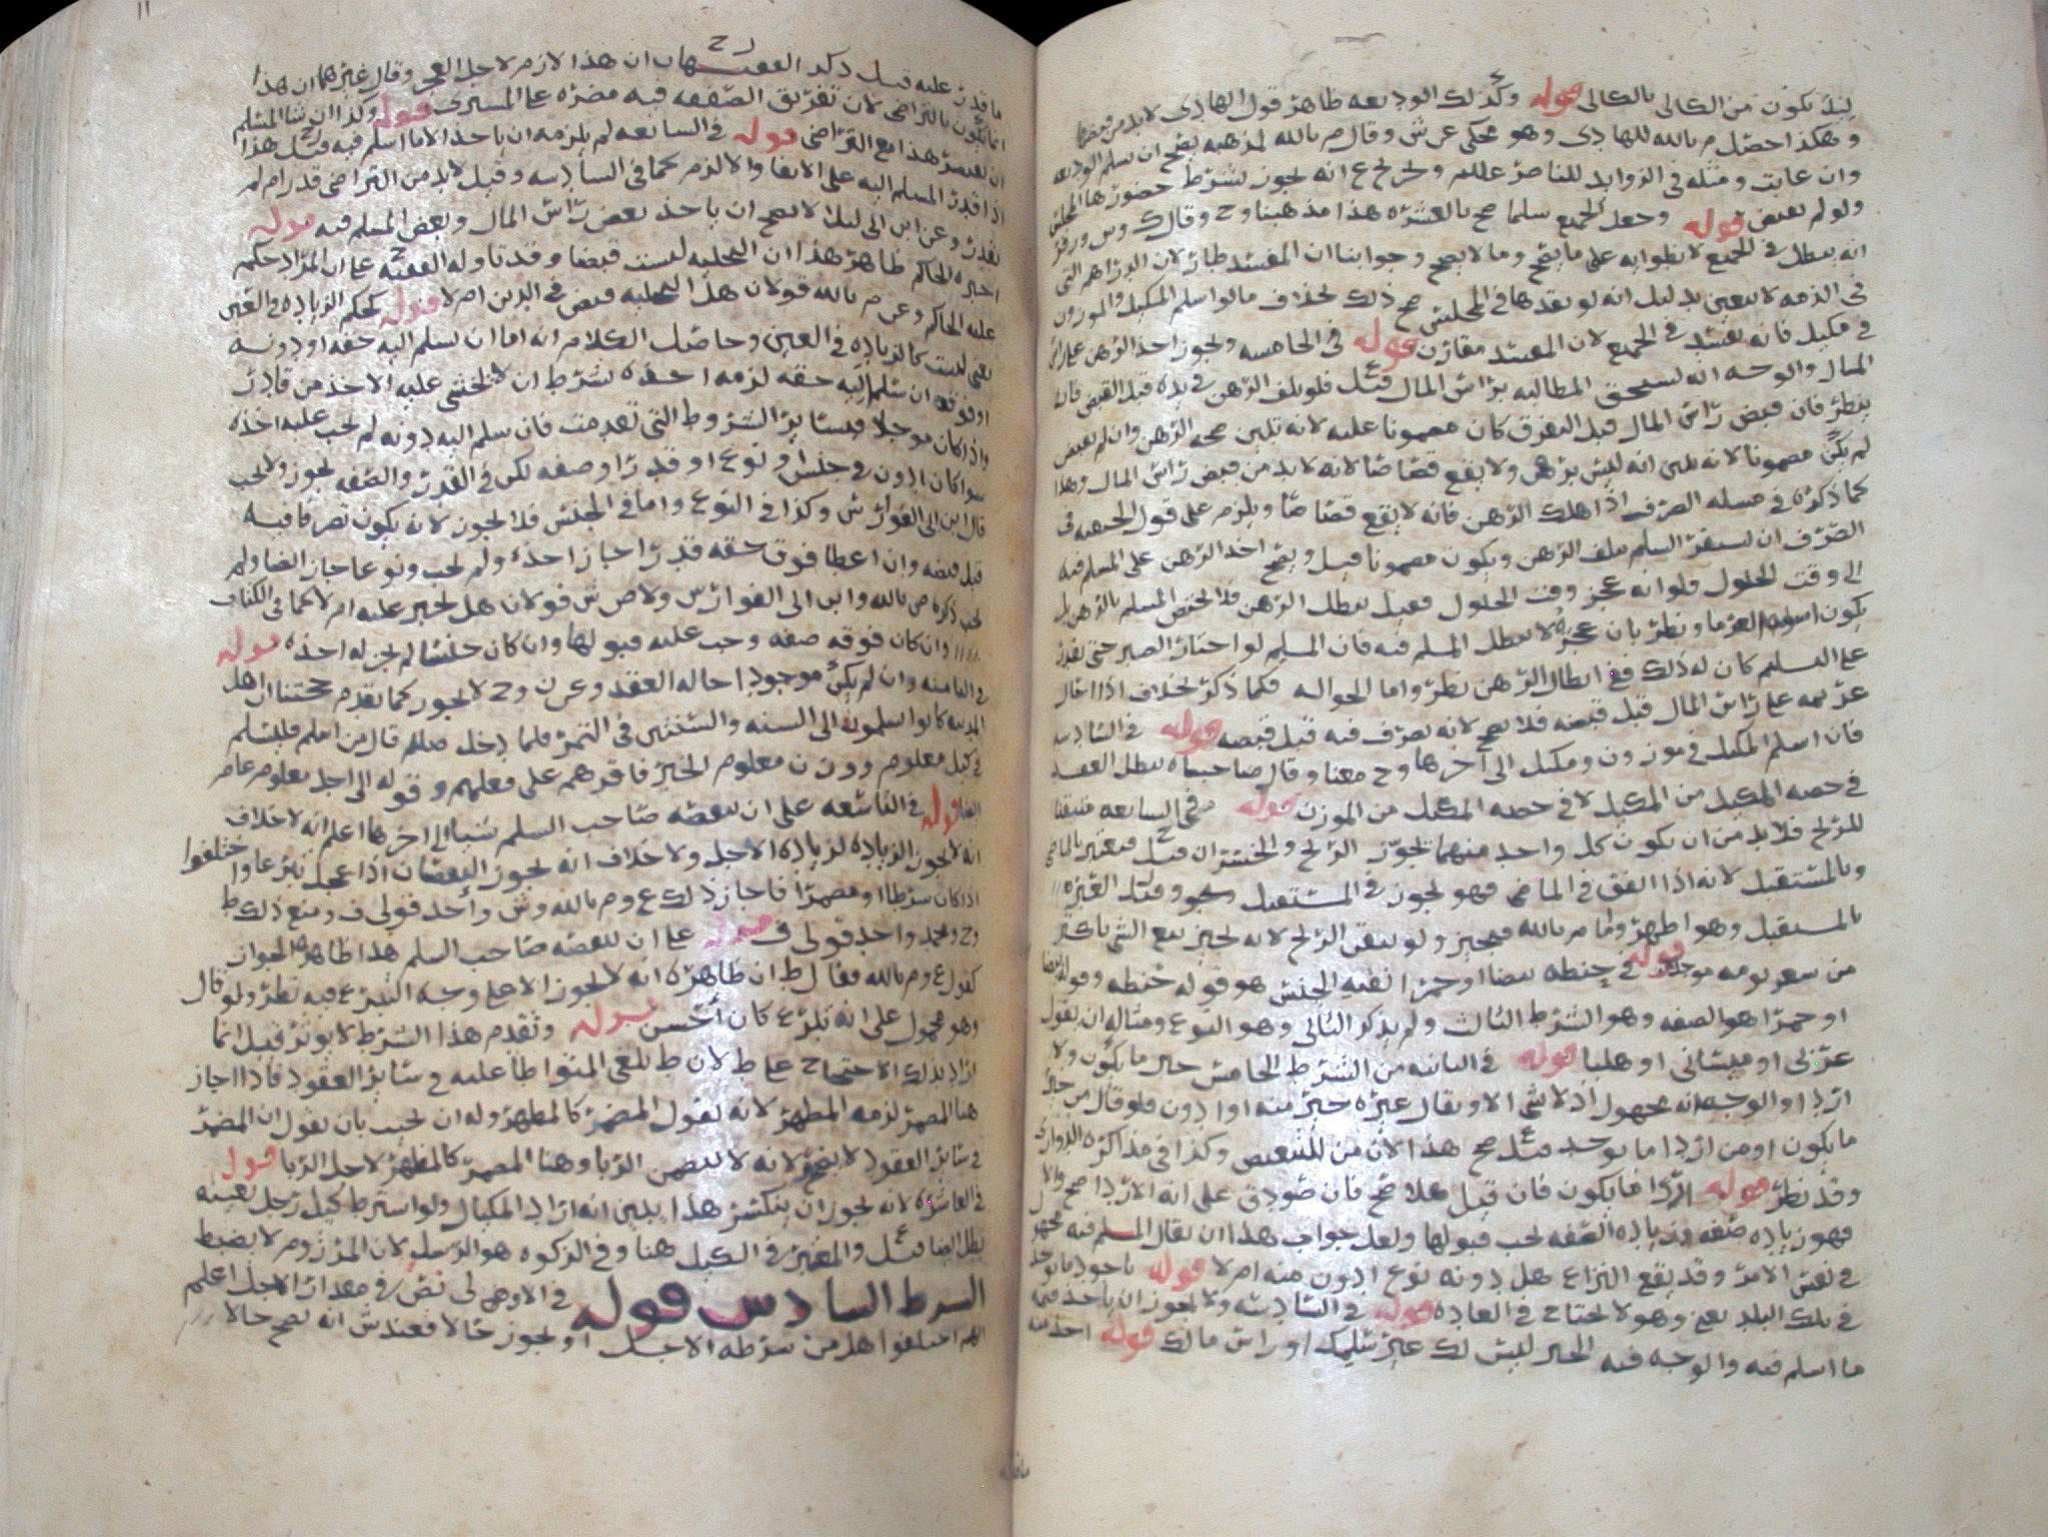 ليلا يكون من الكالى بالكالى قوله وكذلك الوديعه ظاهر قول الهادى لابد من قبضها
وهكذا حصل م بالله للهادى وهو محكى عن ش وقال م بالله لمذهبه يصح ان يسلم الوديعه
وان غابت ومثله فى الزوايد للناصر عللم وخرج ع انه يجوز بشرط حضورها المجلس
ولو لم يقبض قوله وجعل الجميع سلما صح بالعشره هذا مذهبنا وح وقال ك وش وزفر
انه يبطل فى الجميع لانطوايه على ما يصح وما لا يصح وجوابنا ان المفسد طار لان الدراهم التى
فى الذمه لا تتعين بدليل انه لو نقدها فى المجلس صح ذلك بخلاف ما لو اسلم المكيل والموزون
فى مكيل فانه يفسد فى الجميع لان المفسد مقارن قوله فى الخامسه ويجوز اخذ الرهن على راس
المال والوجه انه يستحق المطالبه براس المال قيل فلو تلف الرهن فى يده قبل القبض فانه
ينظر فان قبض راس المال قبل التفرق كان مضمونا عليه لانه تبين صحه الرهن وان لم يقبض
لم يكن مضمونا لانه تبين انه ليس برهن ولا يقع قصاصا لانه لابد من قبض راس المال وهذا
كما ذكره فى مسله الصرف اذا هلك الرهن فانه لا يقع قصاصا ويلزم على قول الحنفيه فى
الصرف ان يستقر السلم بتلف الرهن ويكون مضمونا قيل ويصح اخذ الرهن على المسلم فيه
الى وقت الحلول فلو انه عجز وقت الحلول فقيل يبطل الرهن فلا يختص المسلم بالرهن بل
يكون اسوه الغرما ونظر بان عجزه لا يبطل المسلم فيه فان المسلم لو اختار الصبر حتى يقدر
على التسليم كان له ذلك ففى ابطال الرهن نظر واما الحواله فكما ذكر بخلاف اذا احال
غريمه على راس المال قبل قبضه فلا يصح لانه تصرف فيه قبل قبضه قوله فى السادسه
فان اسلم المكيل فى موزون ومكيل الى آخرها وح معنا وقال صاحباه يبطل العقد
فى حصه المكيل من المكيل لا فى حصه المكيل من الموزن قوله فى السابعه متيقنا
للربح فلابد من ان يكون كل واحد منهما يجوز الربح والخسران قيل فيعتبر بالماضى
وبالمستقبل لانه اذا اتفق فى الماضى فهو يجوز فى المستقبل وقيل العبره
بالمستقبل وهو اظهر واما م بالله فيجيز ولو تيقن الربح لانه يجيز بيع الشى باكثر
من سعر يومه موجلا قوله فى حنطه بيضا او حمرا نفيه الجنس هو قوله حنطه وقوله بيضا
او حمرا هو الصفه وهو الشرط الثالث ولم يذكر الثانى وهو النوع ومثاله ان يقول
عربى او ميسانى او هلبا قوله فى الثانيه من الشرط الخامس خير ما يكون ولا
اردا والوجه انه مجهول اذ لا شى الا ويقال غيره خير منه او ادون فلو قال من خير
ما يكون او من اردا ما يوجد قيل صح هذا لان من للتبعيض وكذا فى مذاكره الدوارى
وقد نظر قوله اردا ما يكون فان قيل هلا صح فان صودق على انه الاردا صح والا
فهو زياده صفه وزياده الصفه يجب قبولها ولعل جواب هذا ان يقال المسلم فيه مجهول
فى نفس الامر وقد يقع النزاع هل دونه نوع ادون منه ام لا قوله ماخوذ ما يوجد
فى تلك البلد يعنى وهو لا يحتاج فى العاده قوله فى السادسه ولا يجوز ان ياخذ فيه
ما اسلم فيه والوجه فيه الخبر ليس لك غير سلمك او راس مالك قوله اخذ منه
ما قدر عليه قيل ذكر الفقيهان ح ان هذا لازم لاجل العجز وقال غيرهما ان هذا
انما يكون بالتراضى لان تفريق الصفقه فيه مضره على المسترى قوله وكذا ان شا المسلم
ان يصبر هذا مع التراضى قوله فى السابعه لم يلزمه ان ياخذ الا ما اسلم فيه قيل هذا
اذا قدر المسلم اليه على الايفا والا لزم كما فى السادسه وقيل لابد من التراضى قدر ام لم
يقدر وعن ابن ابى ليلا لا يصح ان ياخذ بعض راس المال وبعض المسلم فيه قوله
اجبره الحاكم ظاهر هذا ان التخليه ليست قبضا وقد تاوله الفقيه ح على ان المراد حكم
عليه الحاكم وعن م بالله قولان هل التخليه قبض فى الدين ام لا قوله كحكم الزياده فى العين
يعنى ليست كالزياده فى العين وحاصل الكلام انه اما ان يسلم اليه حقه او دونه
او فوقه ان سلم اليه حقه لزمه اخذه بشرط ان لا يخشى عليه الاخذ من قادر
واذا كان موجلا فبساير الشروط التى تقدمت فان سلم اليه دونه لم يجب عليه اخذه
سوا كان ادون فى جنس او نوع او قدر او صفه لكن فى القدر والصفه يجوز ولا يجب
قال ابن ابى الفوارس وكذا فى النوع واما فى الجنس فلا يجوز لانه يكون تصرفا فيه
قبل قبضه وان اعطا فوق حقه قدرا جاز اخذه ولم يجب ونوعا جاز ايضا ولم
يجب ذكره ص بالله وابن ابى الفوارس ولاص ش قولان هل يجبر عليه ام لا كما فى الكتاب
وان كان فوقه صفه وجب عليه قبولها وان كان جنسا لم يجز له اخذه قوله
فى الثامنه وان لم يكن موجودا حاله العقد وعن ن وح لا يجوز كما تقدم حجتنا ان اهل
المدينه كانوا يسلمون الى السنه والسنتين فى التمر فلما دخل صللم قال من اسلم فليسلم
فى كيل معلوم ووزن معلوم الخبر فاقرهم على فعلهم وقوله الى اجل معلوم عام
ايضا قوله فى التاسعه على ان ينقصه صاحب السلم شيا الى اخرها اعلم انه لا خلاف
انه لا يجوز الزياده لزياده الاجل ولا خلاف انه يجوز النقصان اذا عجل تبرعا واختلفوا
اذا كان شرطا او مضمرا فاجاز ذلك ع وم بالله وش واحد قولى ف ومنع ذلك ط
وح ومحمد واحد قولى ف قوله على ان ينقصه صاحب السلم هذا ظاهره الجواز
كقول ع وم بالله فقال ط ان ظاهره انه لا يجوز الا على وجه التبرع فيه نظر ولو قال
وهو محمول على انه تبرع كان أحسن قوله وتقدم هذا الشرط لا يوثر قيل انما
اراد بذلك الاحتجاج على ط لان ط يلغى المتواطا عليه فى ساير العقود فاذا اجاز
هنا المضمر لزمه المظهر لانه يقول المضمر كالمظهر وله ان يجيب بان يقول ان المضمر
فى ساير العقود لا يصح لانه لا يتضمن الربا وهنا المضمر كالمظهر لاجل الربا قوله
فى العاشره لانه يجوز ان ينكسر هذا يبين انه اراد المكيال ولو اشترط كيل رجل بعينه
بطل ايضا قيل والمعتبر فى الكيل هنا وفى الزكوه هو الرسل لان المرزوم لا يضبط
السرط السادس قوله فى الاوهى لى نص فى مقدار الاجل اعلم
انهم اختلفوا هل من شرطه الاجل او يجوز حالا فعند ش انه يصح حالا